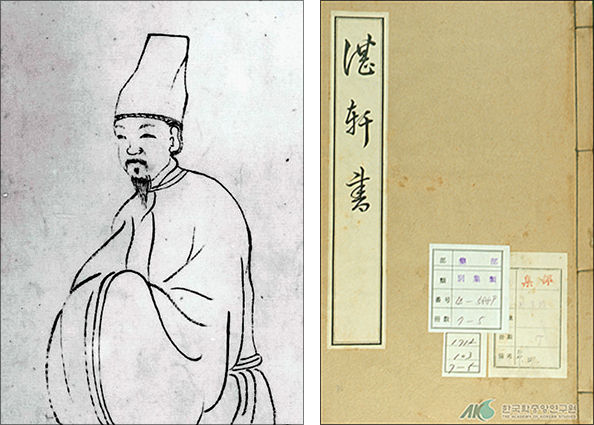 湛軒書
部 集 部
類 別集類
番号
冊数 7-5
1714
103
7-5
集部
한국학중앙연구원
THE ACADEMY OF KOREAN STUDIES